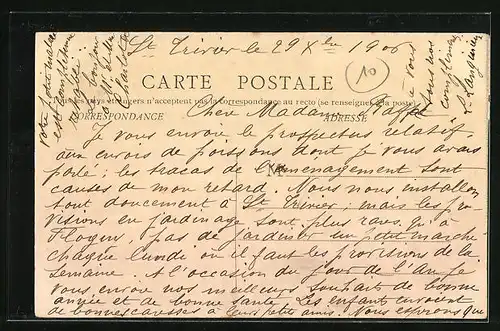 St Trivier le 29 Xbre 1906
10
CARTE POSTALE
pays étrangers n'acceptent pas la correspondance au recto (se renseigner à la poste)
CORRESPONDANCE
ADRESSE
Chère Madame
Je vous envoie le prospectus relatif
aux envois de poissons dont je vous avais
parlé; les tracas de l'aménagement sont
causes de mon retard. Nous nous installons
tout doucement à St Trivier; mais les pro
visions en jardinage sont plus rares qu'à
pas de jardinier un petit marché
chaque lundi où il faut les provisions de la
semaine. A l'occasion du jour de l'an je
vous envoie nos meilleurs souhaits de bonne
année et de bonne santé. Les enfants envoient
de bonnes caresses à leurs petits amis. Nous espérons que
votre petit malade
est complètement
bonjour
à Mr
à vous
tous nos
compliments